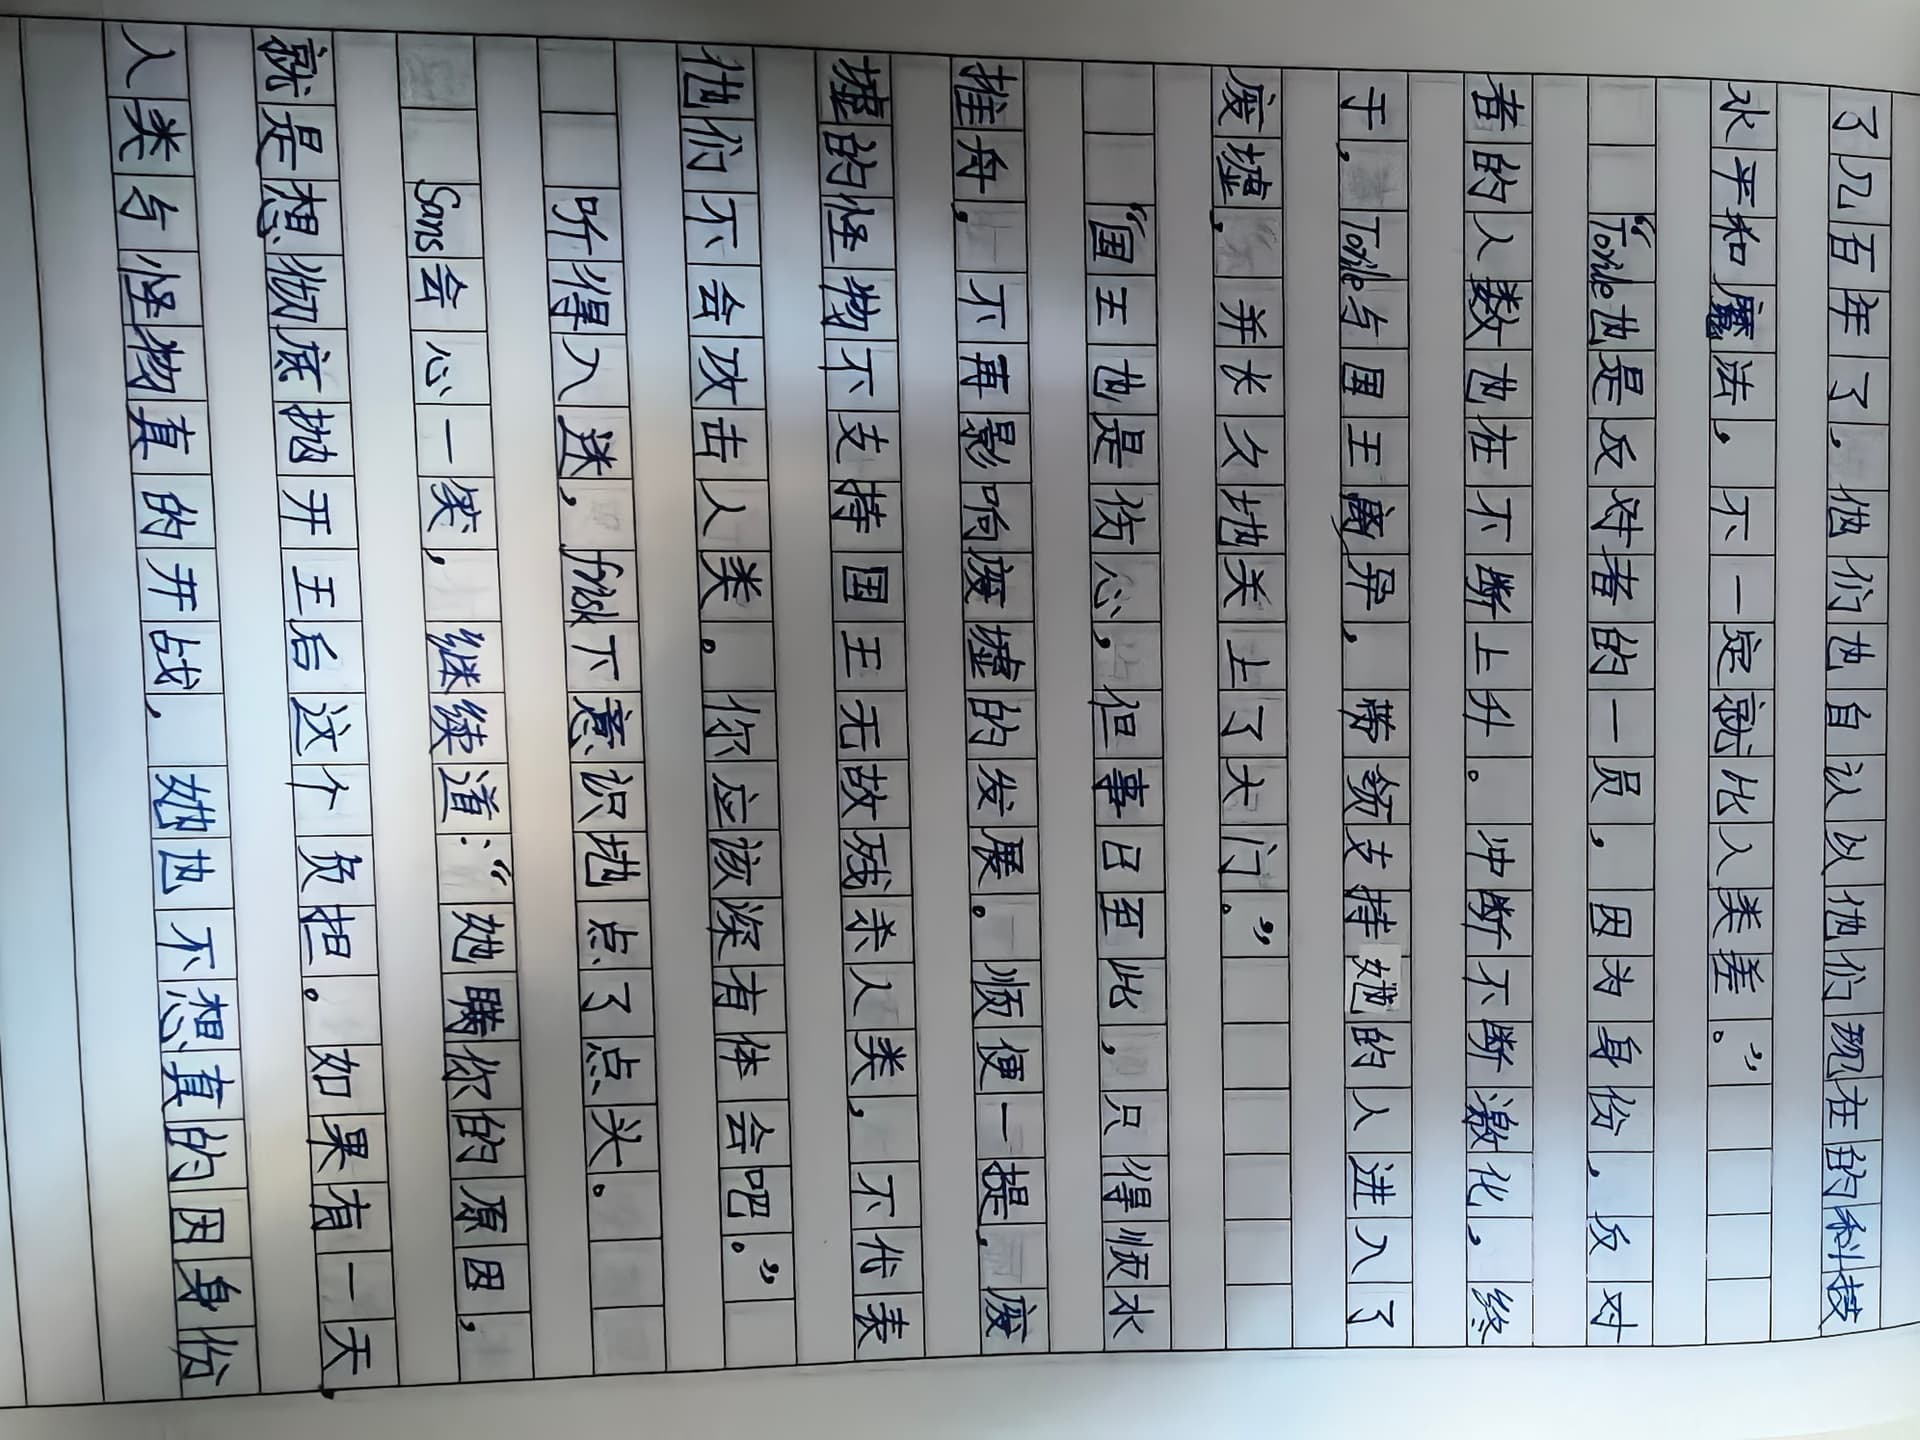 了几百年了，他们也自认以他们现在的科技
水平和魔法，不一定就比人类差。”
“Torile也是反对者的一员，因为身份，反对
者的人数也在不断上升。冲断不断激化，终
于，Torile与国王离异，带领支持她的人进入了
废墟，并长久地关上了大门。”
“国王也是伤心，但事已至此，只得顺水
推舟，不再影响废墟的发展。顺便一提，废
墟的怪物不支持国王无故残杀人类，不代表
他们不会攻击人类。你应该深有体会吧。”
听得入迷，frisk下意识地点了点头。
Sans会心一笑，继续道：“她瞒你的原因，
就是想彻底抛开王后这个负担。如果有一天
人类与怪物真的开战，她也不想真的因身份